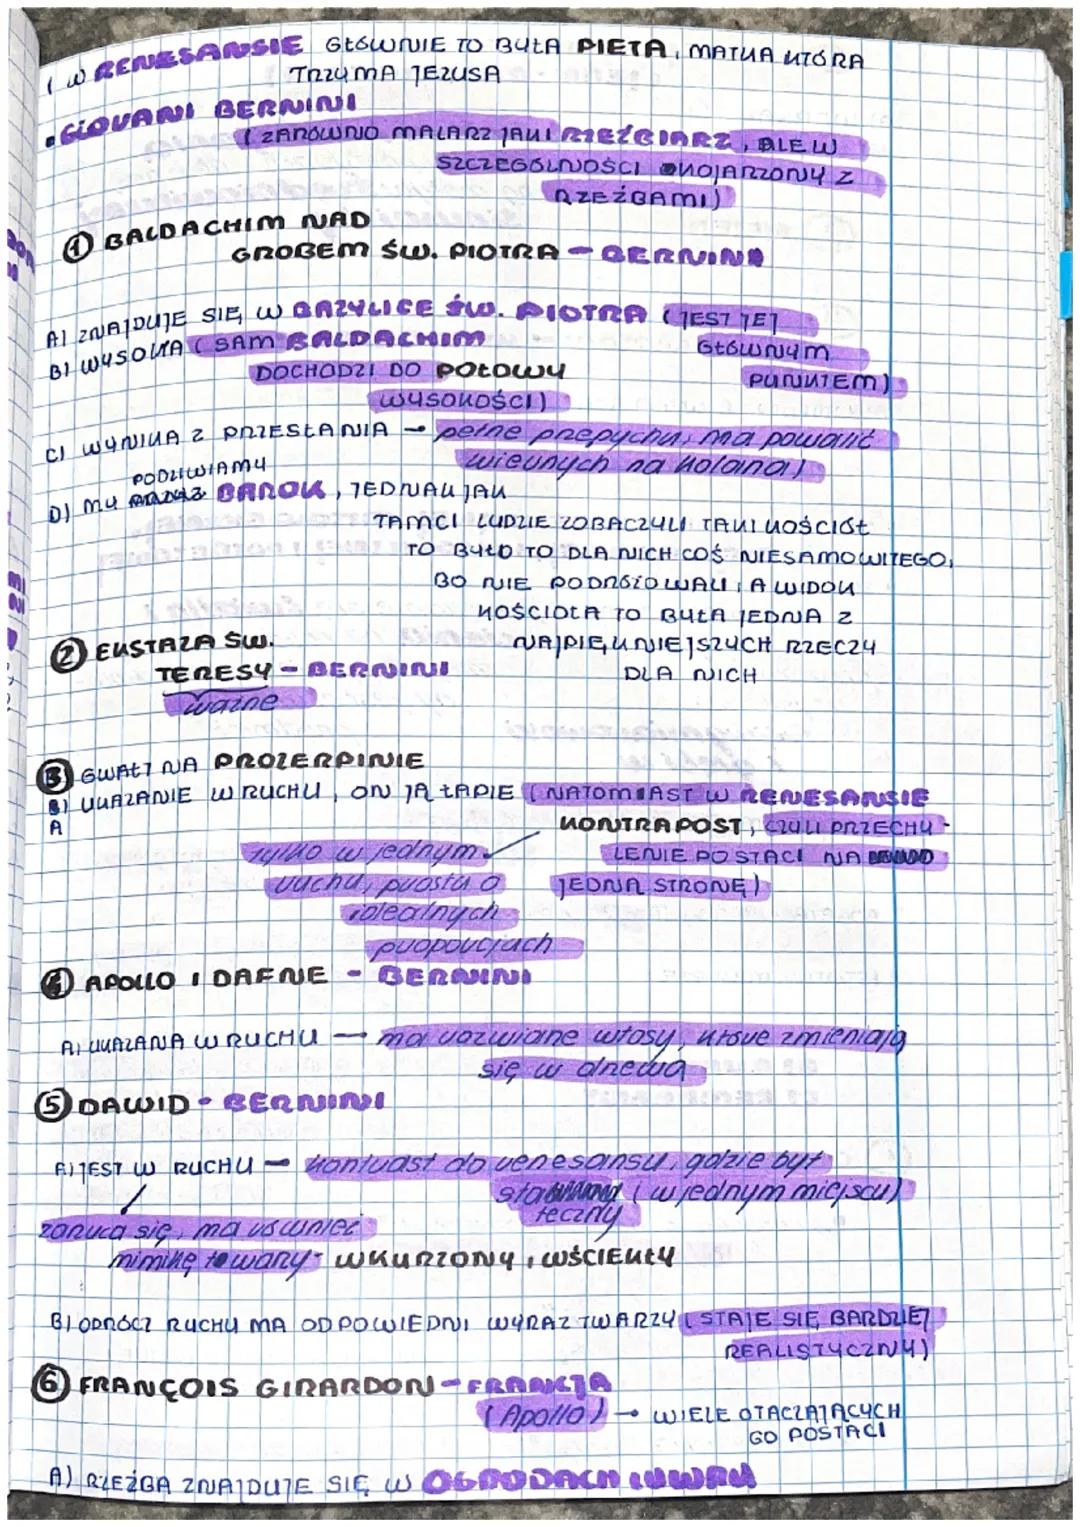 ( W RENESANSIE GŁÓWNIE TO BYŁA PIETA, MATKA KTÓRA
TRZYMA JEZUSA
• GIOVANI BERNINI
( ZARÓWNIO MALARZ JAK I RZEŹBIARZ, ALE W
SZCZEGÓLNOŚCI KOJARZONY Z
RZEŹBAMI)
① BALDACHIM NAD
GROBEM ŚW. PIOTRA - BERNINI
A) ZNAJDUJE SIĘ W BAZYLICE ŚW. PIOTRA ( JEST JEJ
GŁÓWNYM
PUNKTEM)
B) WYSOKA ( SAM BALDACHIM
DOCHODZI DO POŁOWY
WYSOKOŚCI)
C) WYNIKA Z PRZESŁANIA → pełne przepychu, ma powalić
wiernych na kolana)
PODZIWIAMY
D) MY BAROK, JEDNAK JAK
TAMCI LUDZIE ZOBACZYLI TAKI KOŚCIÓŁ
TO BYŁO TO DLA NICH COŚ NIESAMOWITEGO,
BO NIE PODRÓŻOWALI, A WIDOK
KOŚCIOŁA TO BYŁA JEDNA Z
NAJPIĘKNIEJSZYCH RZECZY
DLA NICH
② EKSTAZA ŚW.
TERESY - BERNINI
ważne
③ GWAŁT NA PROZERPINIE
B) UKAZANIE W RUCHU, ON JĄ ŁAPIE ( NATOMIAST W RENESANSIE
A
KONTRAPOST, CZYLI PRZECHY-
LENIE POSTACI NA
JEDNĄ STRONĘ)
tylko w jednym
ruchu, prosta o
idealnych
proporcjach
④ APOLLO I DAFNE - BERNINI
A) UKAZANA W RUCHU — ma rozwiane włosy, które zmieniają
się w drzewa
⑤ DAWID - BERNINI
A) JEST W RUCHU — kontrast do renesansu, gdzie był
sta ( w jednym miejscu)
teczny
zarzuca się, ma również
mimikę towarzy - WKURZONY, WŚCIEKŁY
B) OPRÓCZ RUCHU MA ODPOWIEDNI WYRAZ TWARZY ( STAJE SIĘ BARDZIEJ
REALISTYCZNY)
⑥ FRANÇOIS GIRARDON - FRANCJA
( Apollo ) → WIELE OTACZAJĄCYCH
GO POSTACI
A) RZEŹBA ZNAJDUJE SIĘ W OGRODACH LUWRU